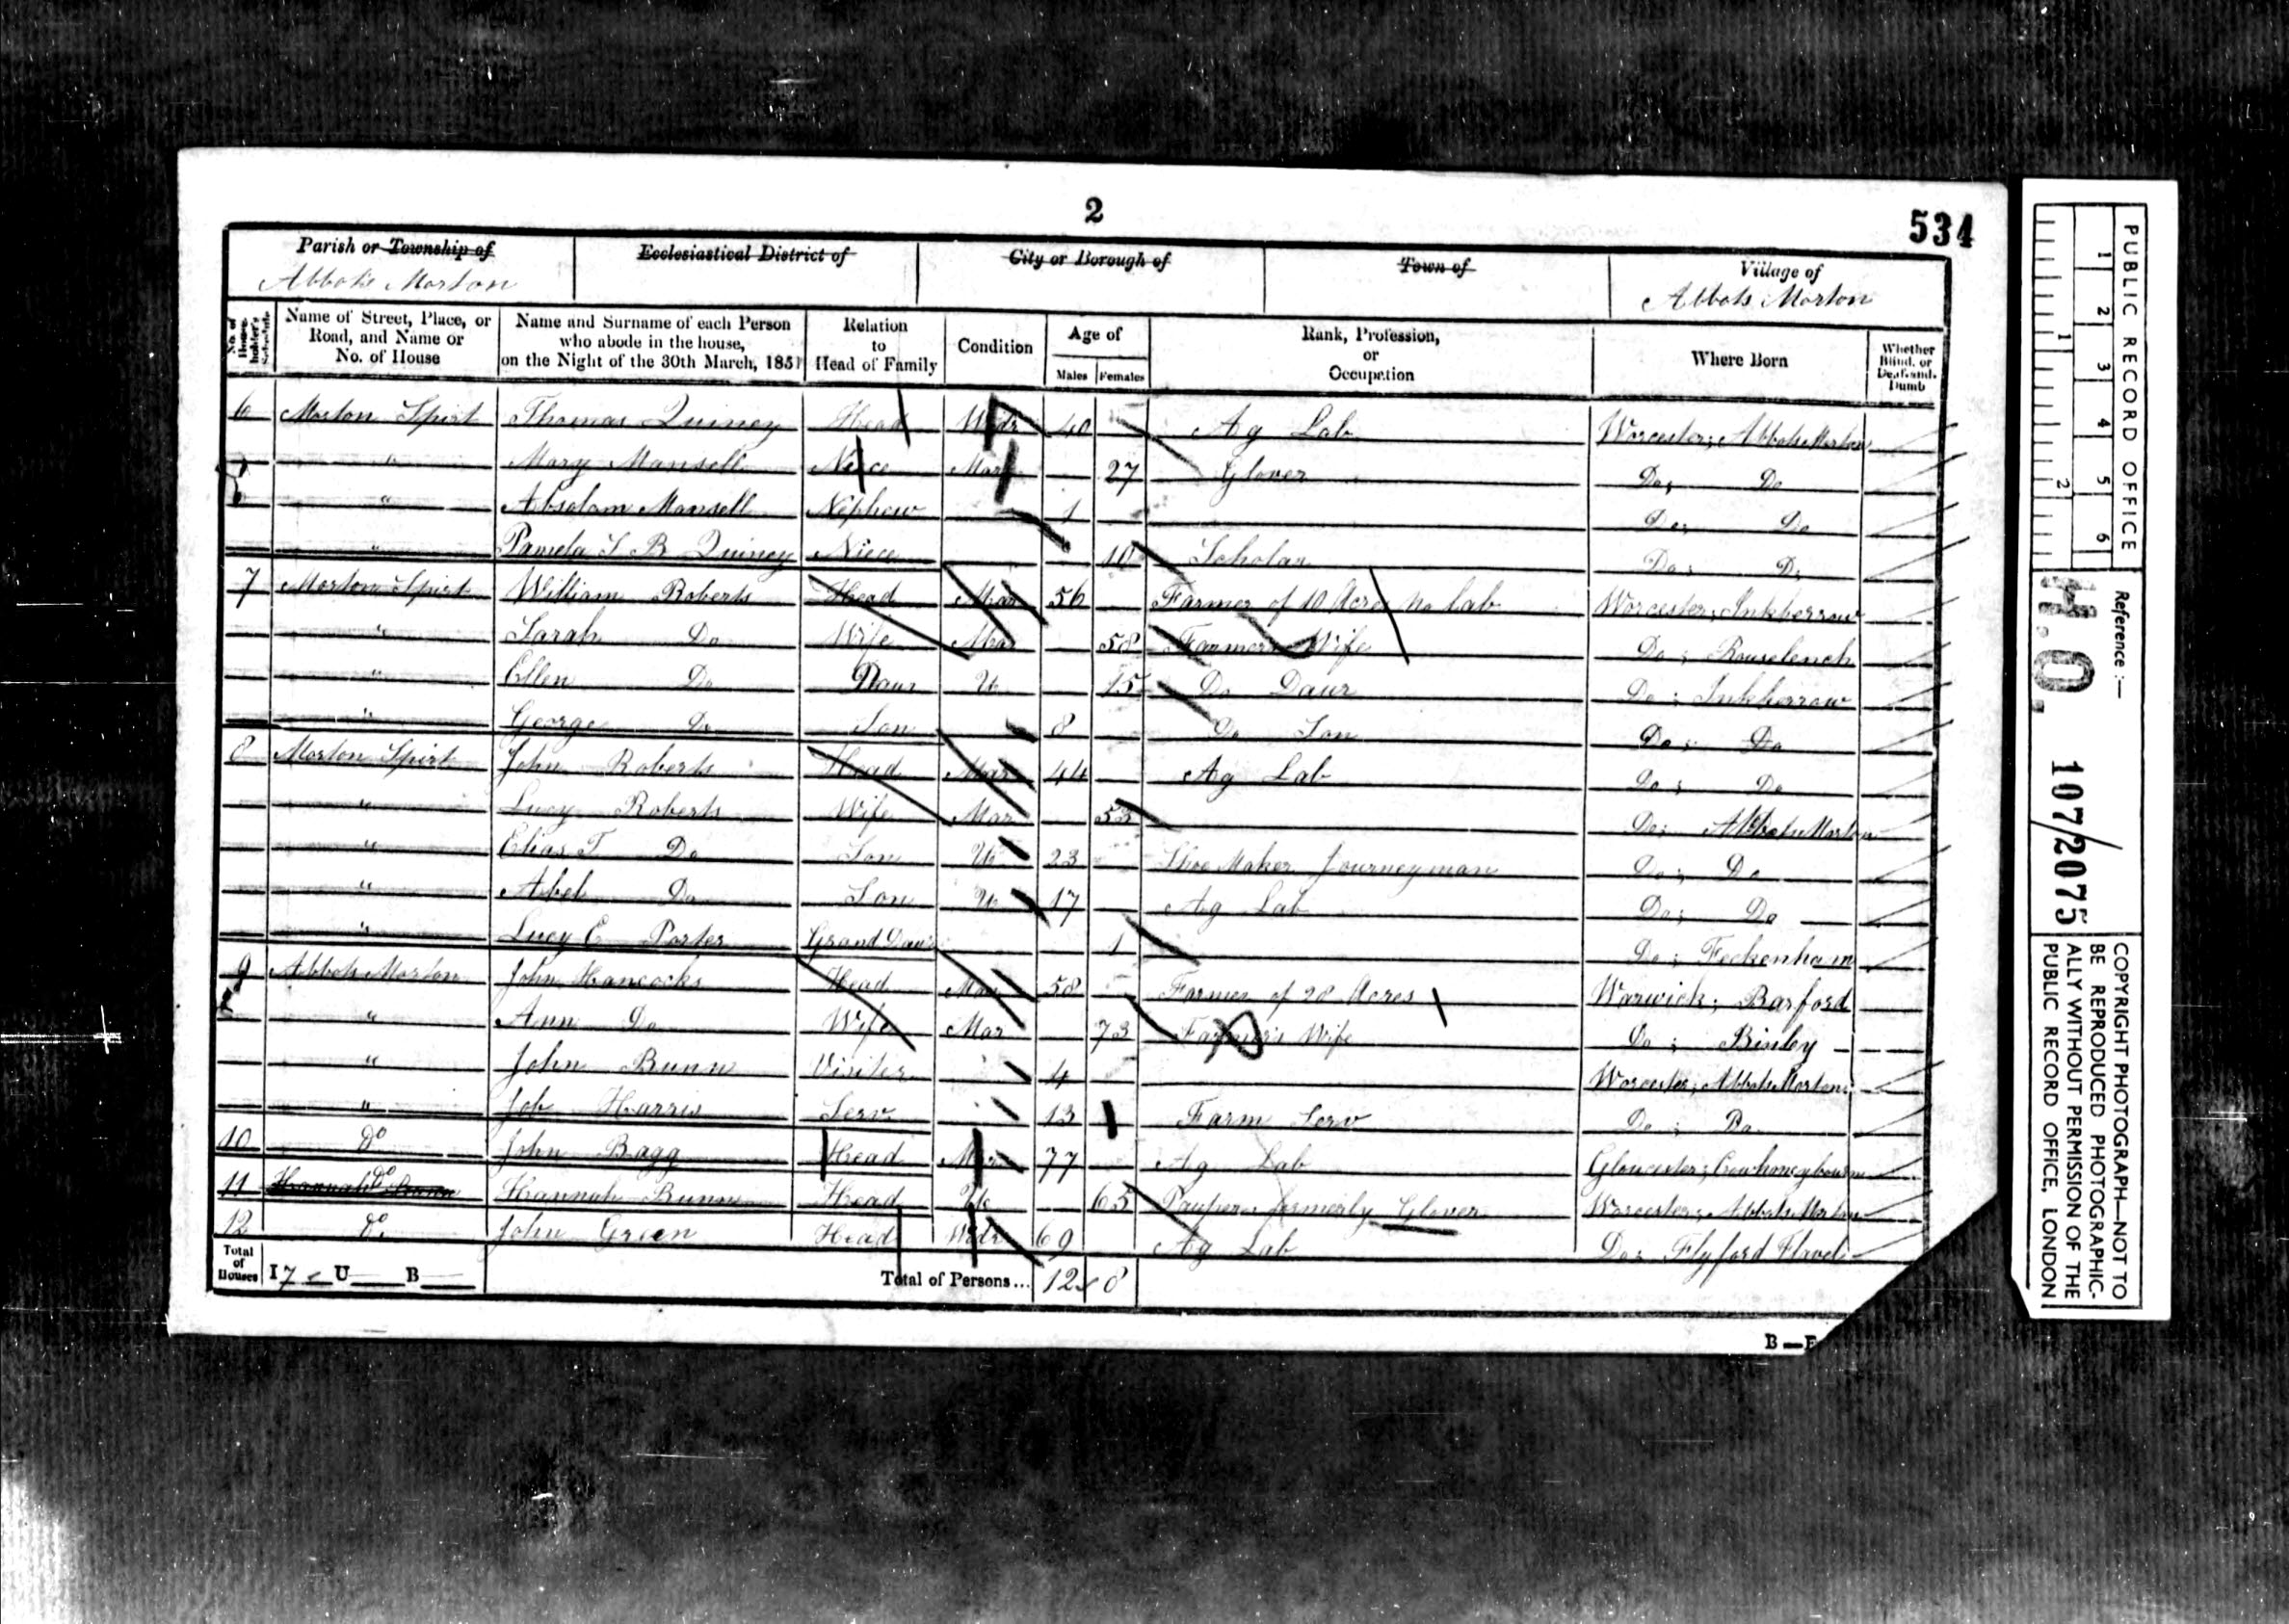 2
534
Parish or Township of
Abbots Morton
Ecclesiastical District of
City or Borough of
Town of
Village of
Abbots Morton
No. of House-holder's Schedule
Name of Street, Place, or Road, and Name or No. of House
Name and Surname of each Person who abode in the house, on the Night of the 30th March, 1851
Relation to Head of Family
Condition
Age of
Males Females
Rank, Profession, or Occupation
Where Born
Whether Blind, or Deaf-and-Dumb
6 Morton Spirt Thomas Quiney Head Widr 40 Ag Lab Worcester; Abbots Morton
" Mary Mansell Niece Mar 27 Glover Do; Do
" Absolom Mansell Nephew 1 Do; Do
" Pamela S B Quiney Niece 10 Scholar Do; Do
7 Morton Spirt William Roberts Head Mar 56 Farmer of 10 Acres No Lab Worcester; Inkberrow
" Sarah Do Wife Mar 58 Farmers Wife Do; Rouselench
" Ellen Do Daur U 15 Do Daur Do; Inkberrow
" George Do Son 8 Do Son Do; Do
8 Morton Spirt John Roberts Head Mar 44 Ag Lab Do; Do
" Lucy Roberts Wife Mar 53 Do; Abbots Morton
" Elias T Do Son U 23 Shoe Maker Journeyman Do; Do
" Abel Do Son U 17 Ag Lab Do; Do
" Lucy E Porter Grand Daur 1 Do; Feckenham
9 Abbots Morton John Hancocks Head Mar 58 Farmer of 28 Acres Warwick; Barford
" Ann Do Wife Mar 73 Farmer's Wife Do; Binley
" John Bunn Visiter 4 Worcester; Abbots Morton
" Job Harris Serv 13 Farm Serv Do; Do
10 Do John Bagg Head Mar 77 Ag Lab Gloucester; Cowhoneybourn
11 Do Hannah Bunn Head U 65 Pauper formerly Glover Worcester; Abbots Morton
12 Do John Green Head Widr 69 Ag Lab Do; Flyford Flavel
Total of Houses I 7 U B Total of Persons... 12 8
B—E
PUBLIC RECORD OFFICE
1 2 3 4 5 6
1 2
Reference:—
H.O. 107/2075
COPYRIGHT PHOTOGRAPH—NOT TO BE REPRODUCED PHOTOGRAPHICALLY WITHOUT PERMISSION OF THE PUBLIC RECORD OFFICE, LONDON